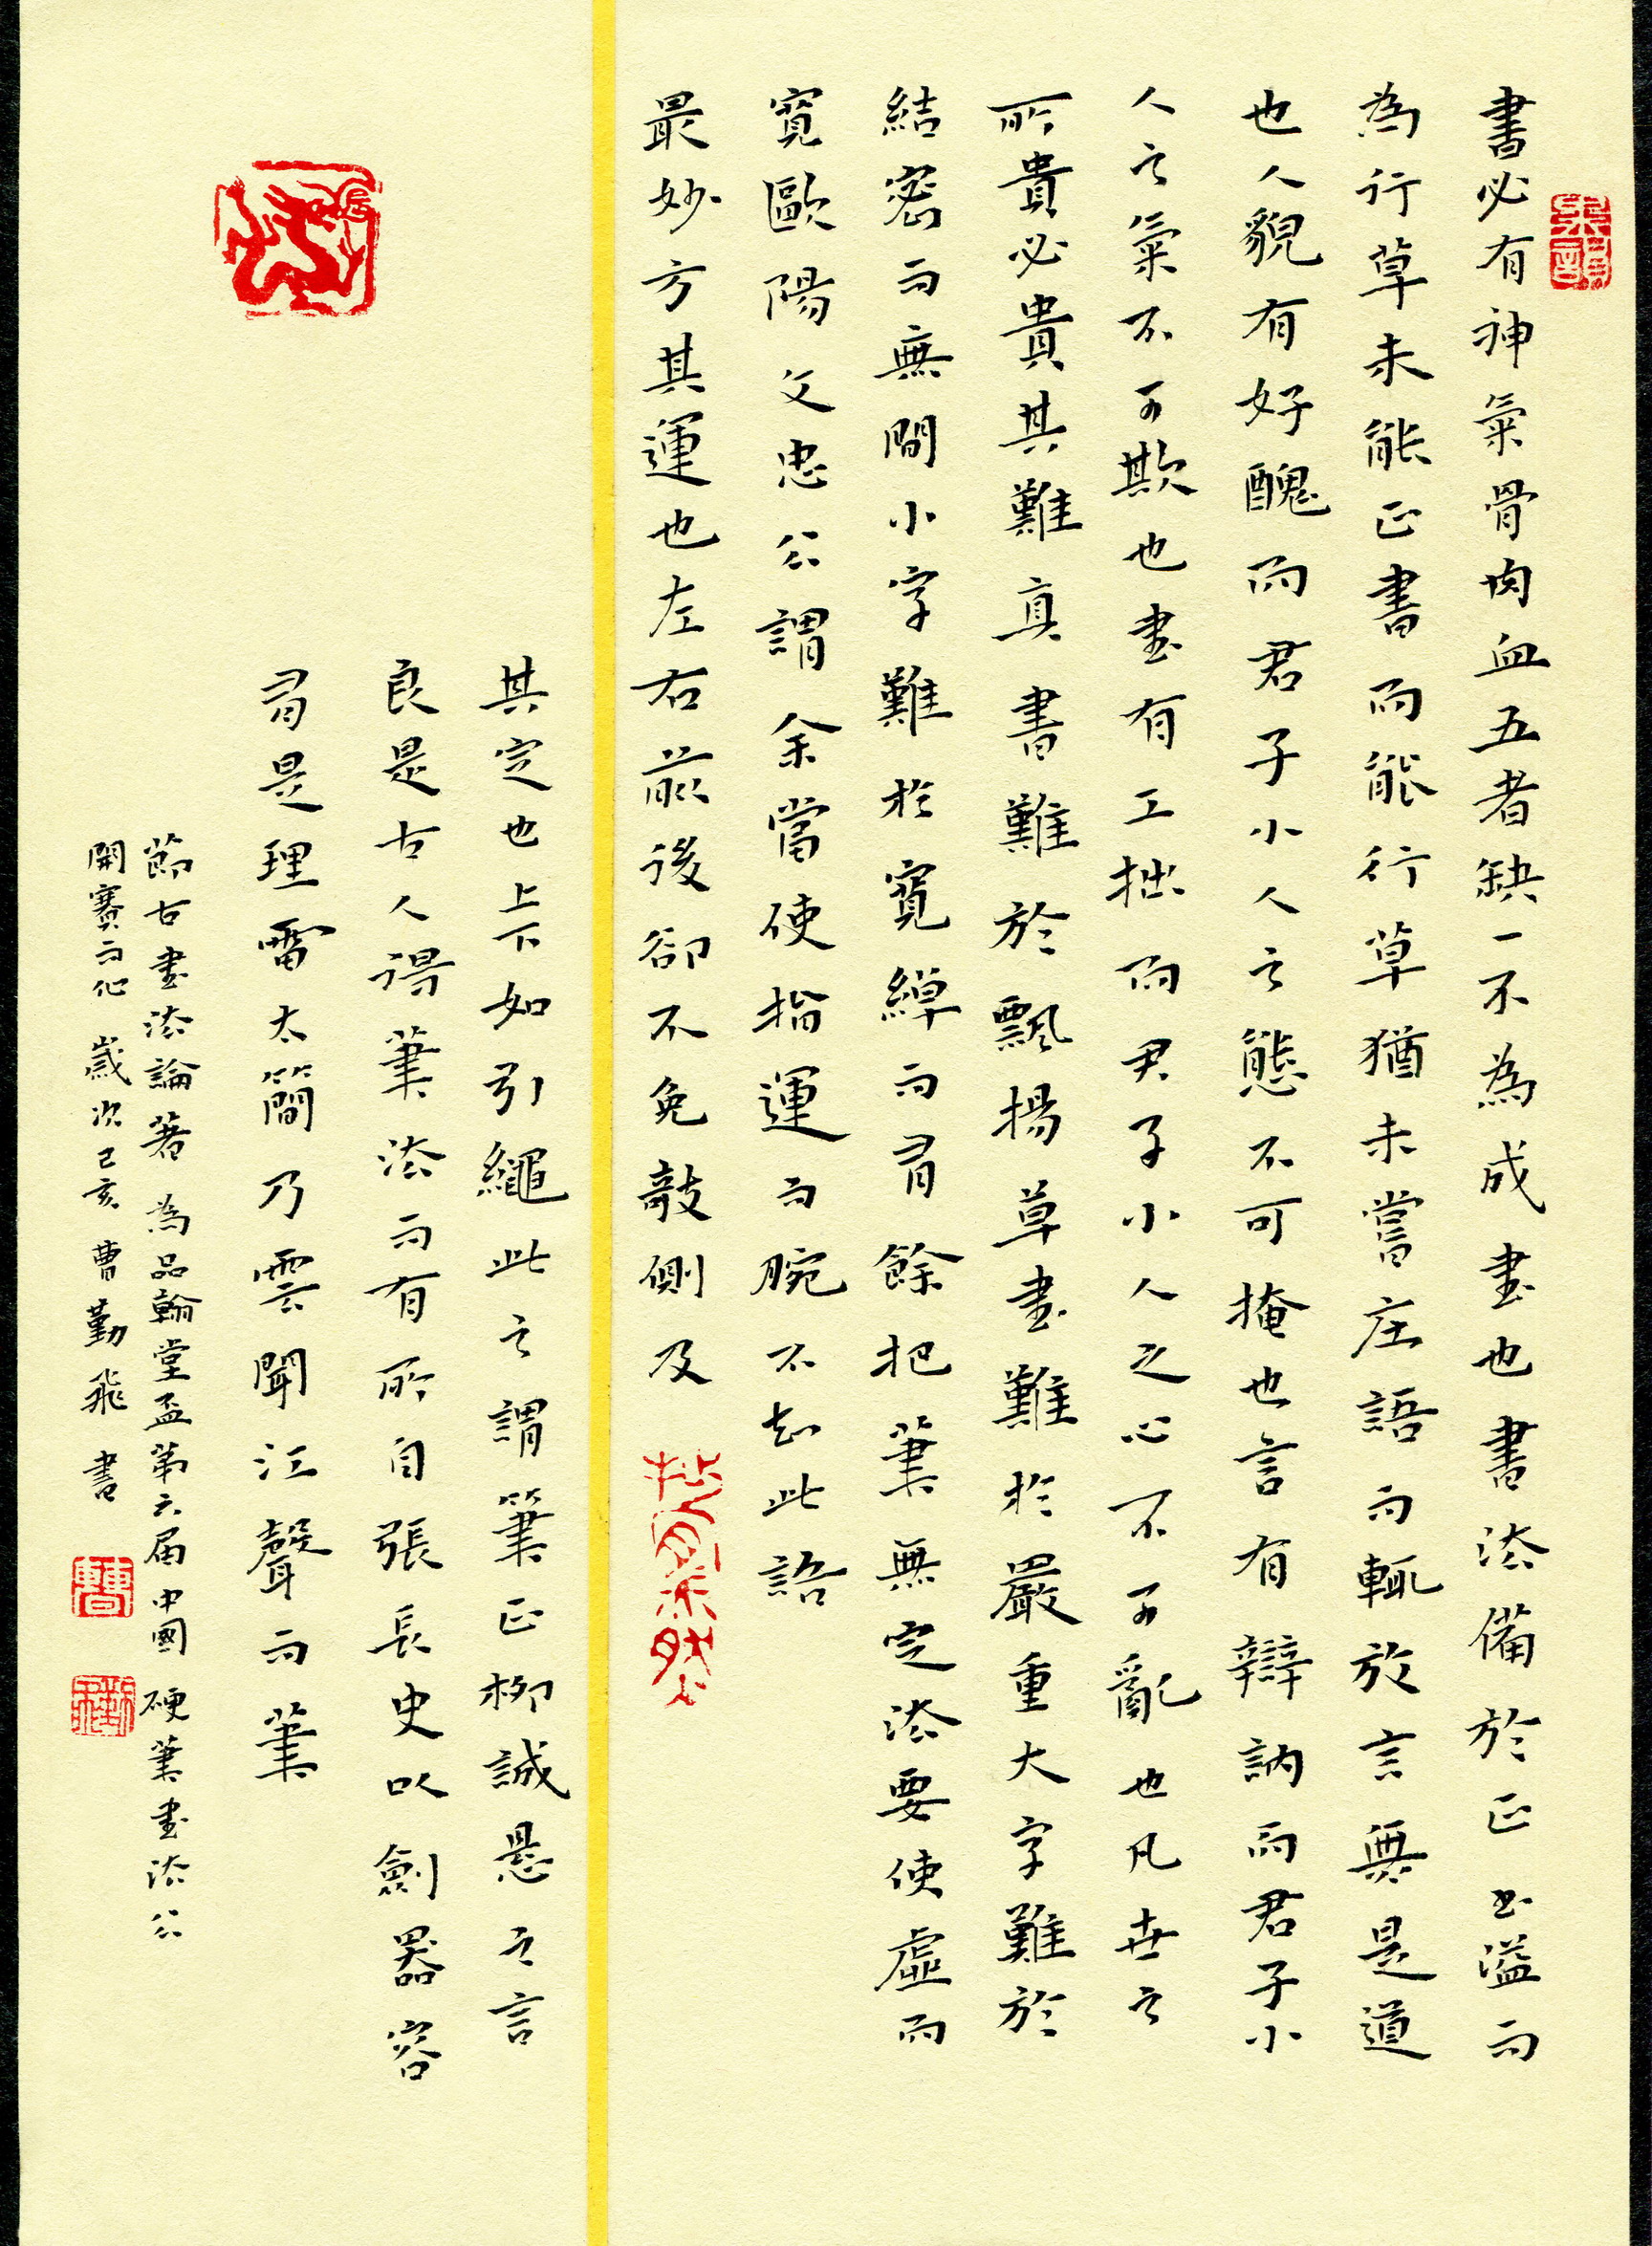 書必有神氣骨肉血五者缺一不為成書也書法備於正書溢而
為行草未能正書而能行草猶未嘗庄語而輒放言無是道
也人貌有好醜而君子小人之態不可掩也言有辯訥而君子小
人之氣不可欺也書有工拙而君子小人之心不可亂也凡世之
所貴必貴其難真書難於飄揚草書難於嚴重大字難於
結密而無間小字難於寬綽而有餘把筆無定法要使虛而
寬歐陽文忠公謂余當使指運而腕不知此語
最妙方其運也左右前後卻不免敧側及
其定也上下如引繩此之謂筆正柳誠懸之言
良是古人得筆法而有所自張長史以劍器容
有是理雷太簡乃雲聞江聲而筆
節古書法論著 為品翰堂盃第六届中國硬筆書法公
開賽而作 歲次己亥 曹勤飛書